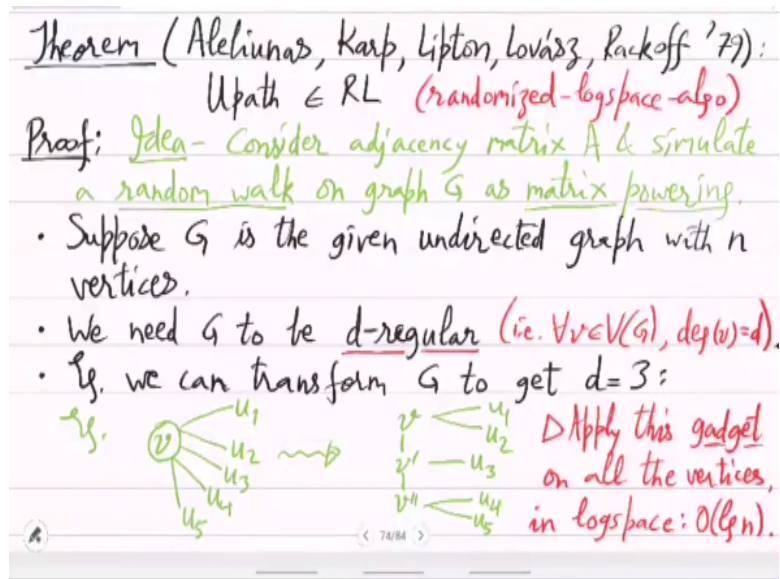 Theorem (Aleliunas, Karp, Lipton, Lovász, Rackoff '79):
Upath ∈ RL (randomized-logspace-algo)
Proof: Idea - Consider adjacency matrix A & simulate
a random walk on graph G as matrix powering.
• Suppose G is the given undirected graph with n
vertices.
• We need G to be d-regular (i.e. ∀v∈V(G), deg(v)=d).
• Eg. we can transform G to get d=3:
Eg. v u1 u2 u3 u4 u5
v u1 u2
v' u3
v'' u4 u5
▷ Apply this gadget
on all the vertices,
in logspace: O(lg n).
74/84